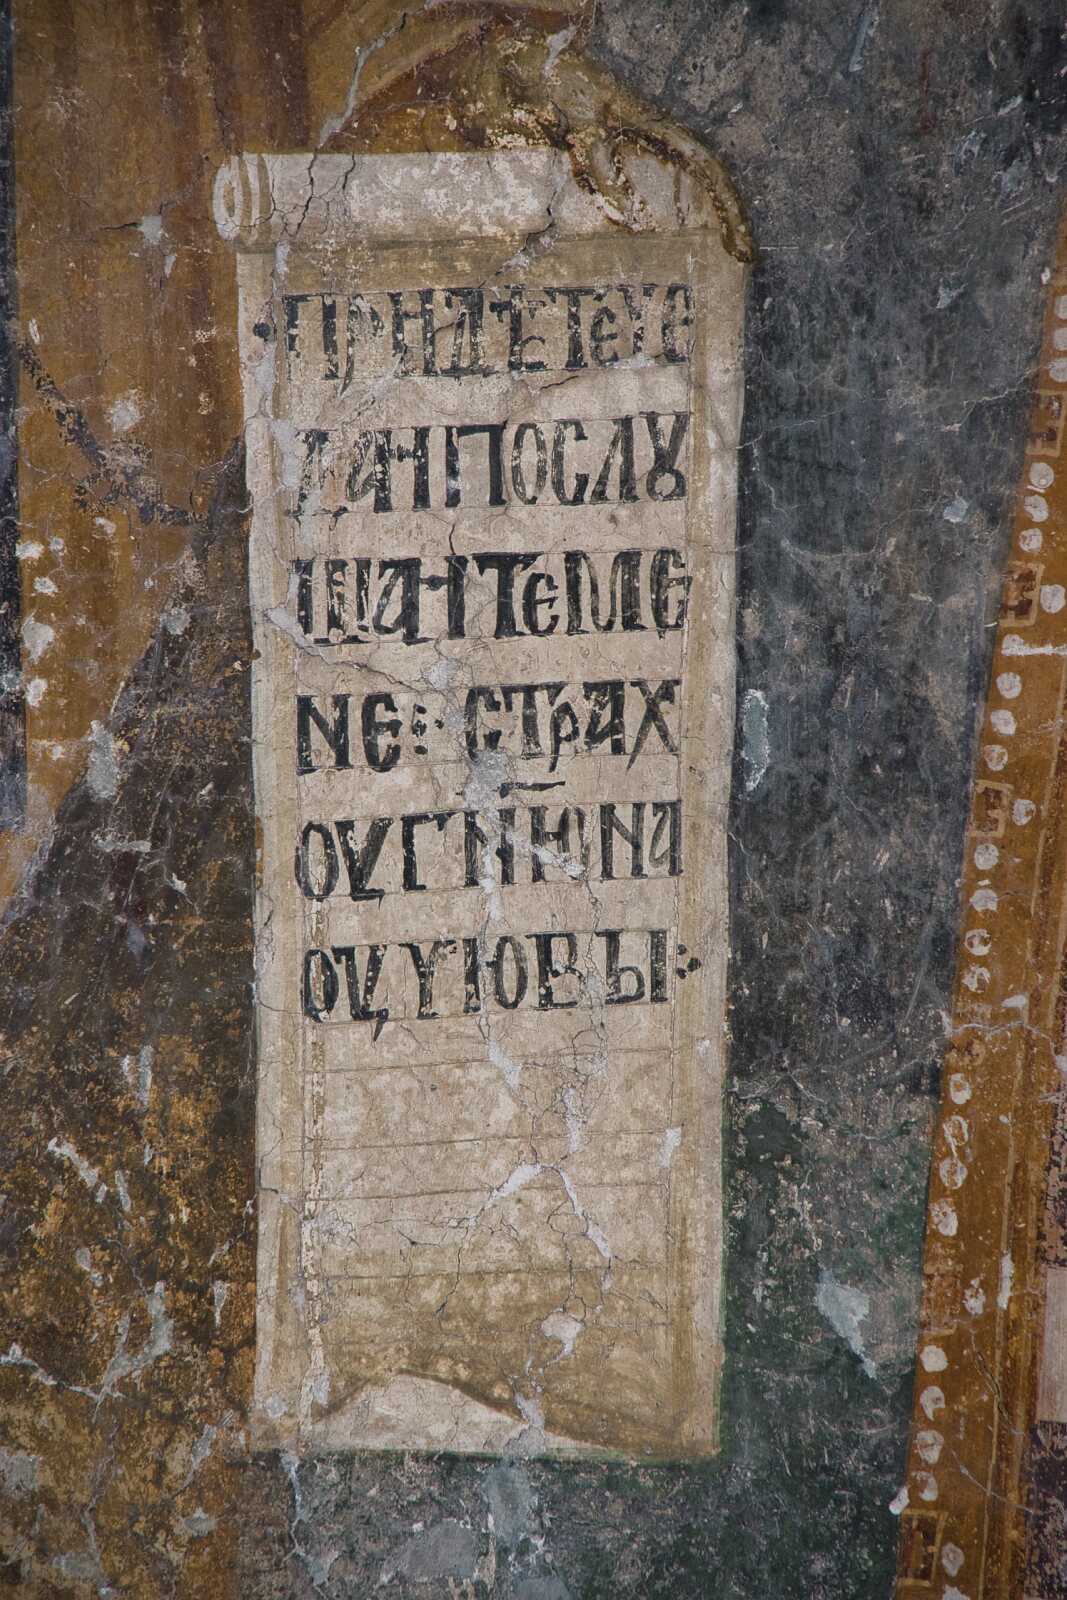 ·ПРИДѢТЕЧЕ
ДАИПОСЛѸ
ШАИТЕМЕ
НЕ: СТРАХ
ОУГН҃ЮНА
ОУЧЮВЫ: